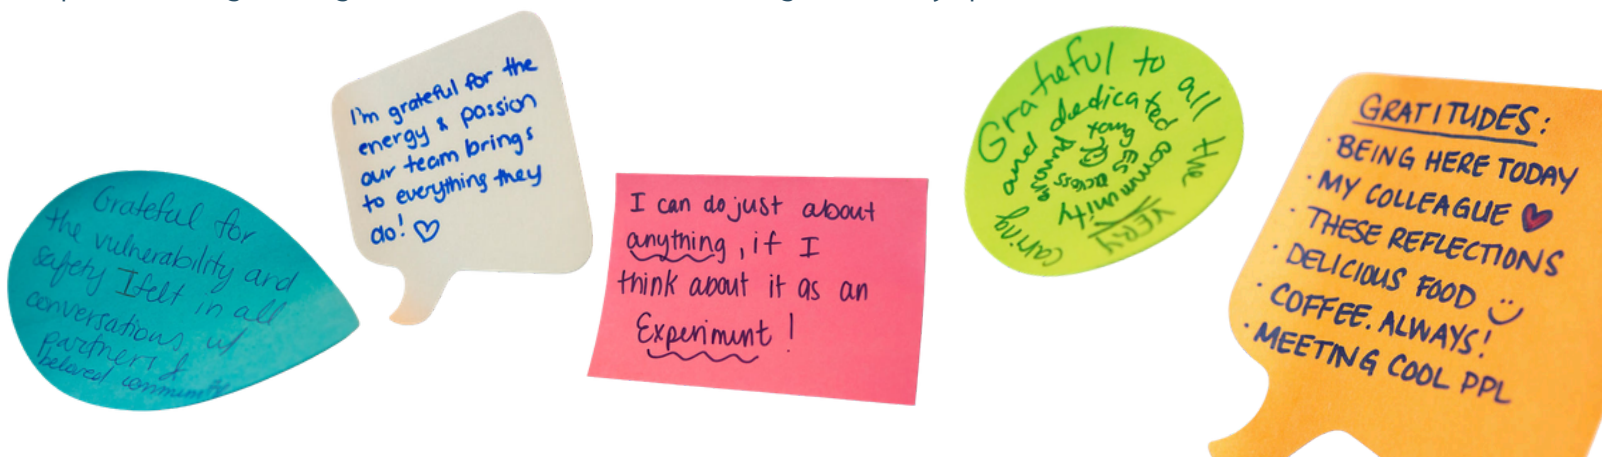 Grateful for
the vulnerability and
safety I felt in all
conversations w/
partners &
beloved communi
I'm grateful for the
energy & passion
our team brings
to everything they
do! ♡
I can do just about
anything, if I
think about it as an
Experiment!
Grateful to all the
VERY
caring and dedicated
community
across
GRATITUDES:
· BEING HERE TODAY
· MY COLLEAGUE ♥
· THESE REFLECTIONS
· DELICIOUS FOOD
· COFFEE. ALWAYS!
· MEETING COOL PPL